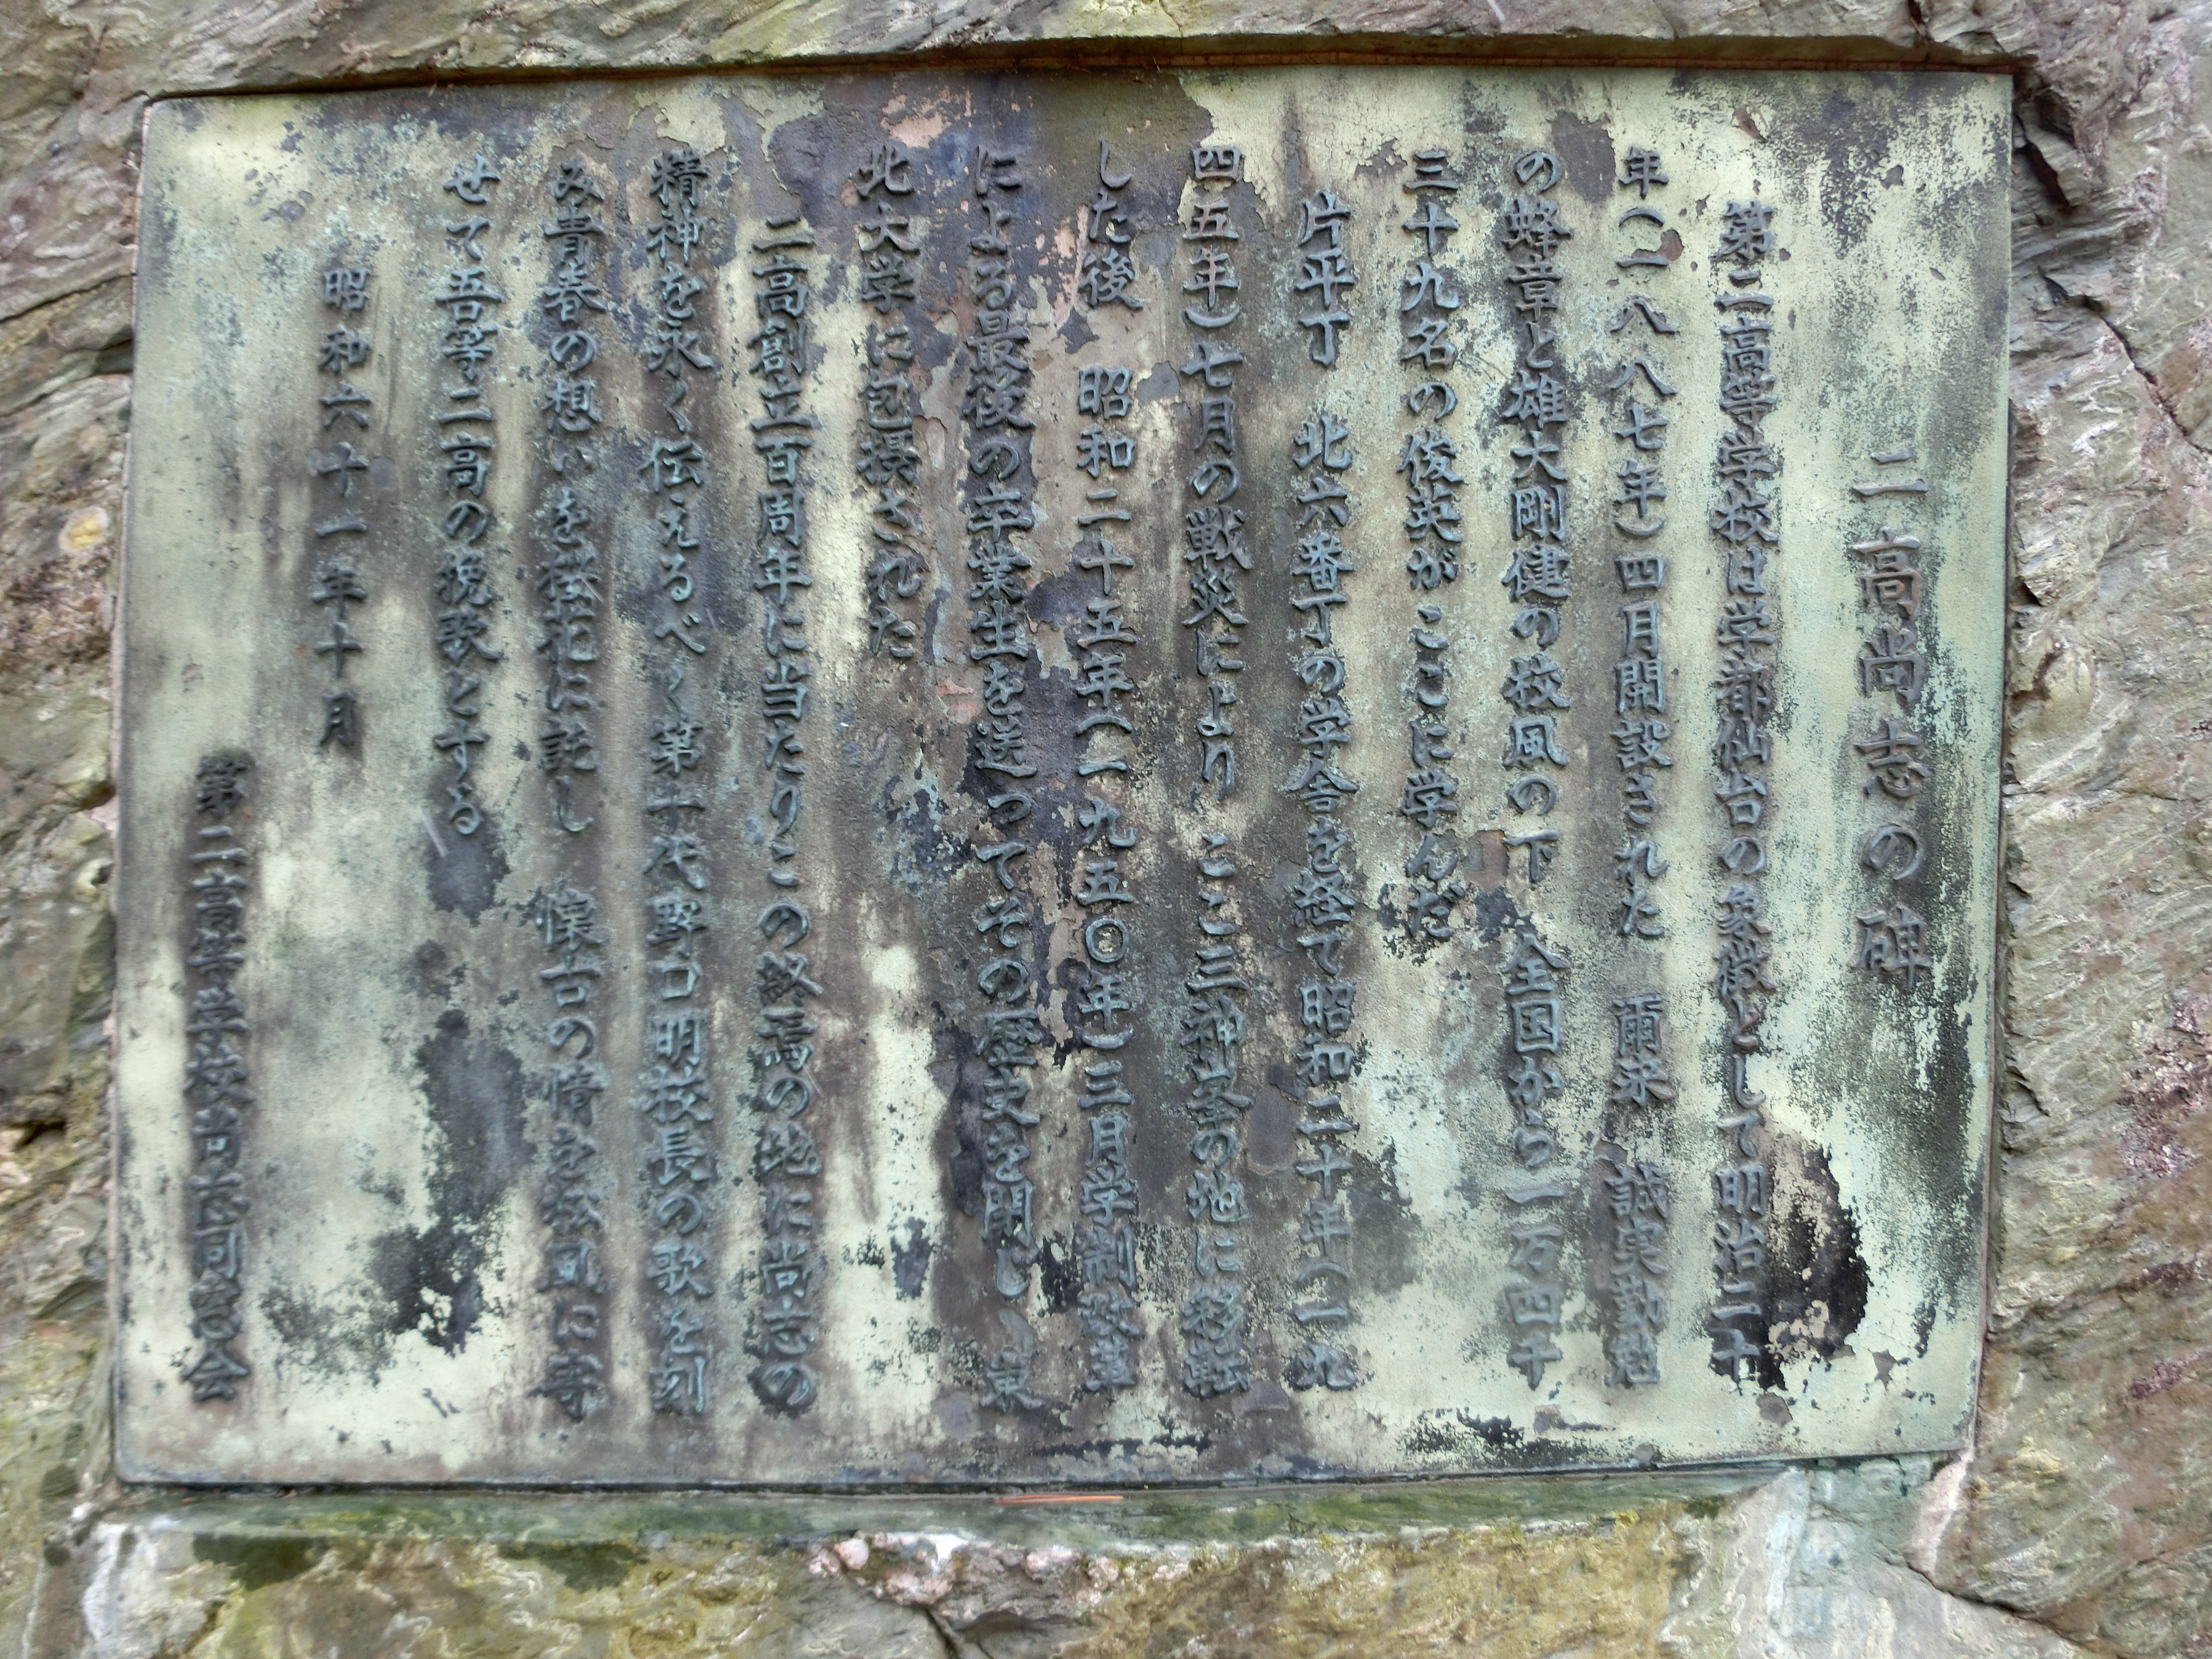 二高尚志の碑
第二高等学校は学都仙台の象徴として明治二十
年(一八八七年)四月開設された 爾来 誠実勤勉
の蜂章と雄大剛健の校風の下 全国から一万四千
三十九名の俊英が ここに学んだ
片平丁 北六番丁の学舎を経て昭和二十年(一九
四五年)七月の戦災により ここ三神峯の地に移転
した後 昭和二十五年(一九五〇年)三月学制改革
による最後の卒業生を送ってその歴史を閉じ 東
北大学に包摂された
二高創立百周年に当たりこの終焉の地に尚志の
精神を永く伝えるべく第十代野口明校長の歌を刻
み青春の想いを桜花に託し 懐古の情を校風に寄
せて吾等二高の挽歌とする
昭和六十一年十月
第二高等学校尚志同窓会